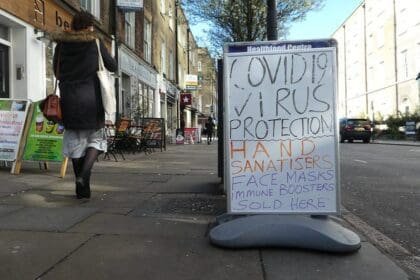 Healthland Centre
COVID19
VIRUS
PROTECTION
HAND
SANATISERS
FACE MASKS
immUNE BOOSTERS
SOLD HERE